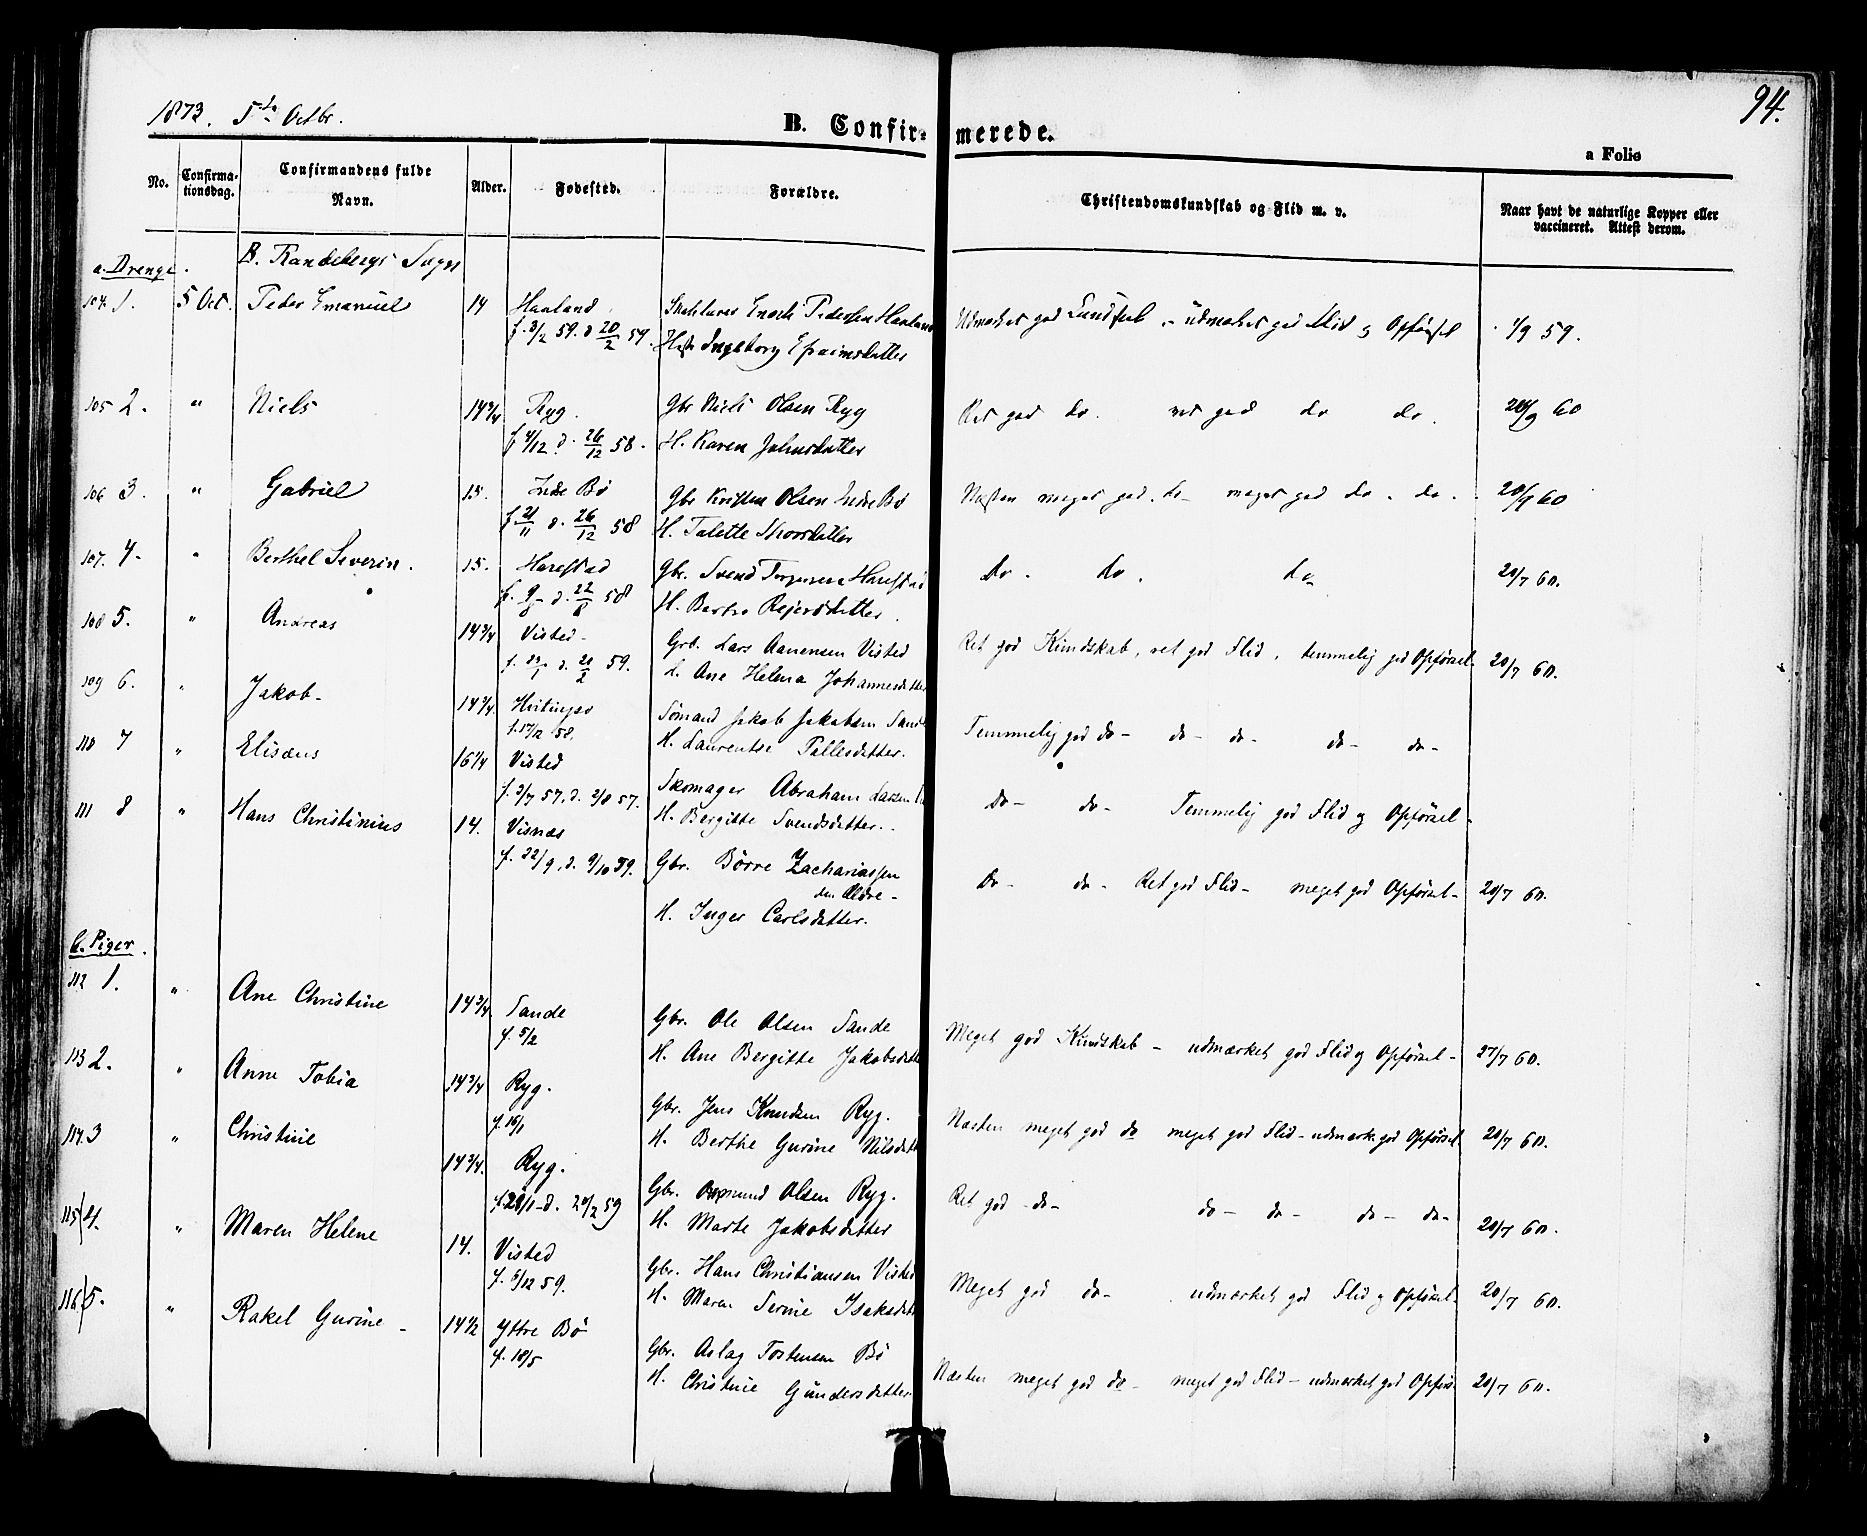 94.
1873. 5te Octbr.
B. Confirmerede.
a Folio
No. Confirmationsdag. Confirmandens fulde Navn. Alder. Fødested. Forældre. Christendomskundskab og Flid m. v. Naar havt de naturlige Kopper eller vaccineret. Attest derom.
B. Randebergs Sogn
a. Drenge.
104. 1. 5 Oct. Peder Emanuel 14 Haaland Enoch Pedersen Haaland Udmærket god Kundskab - udmærket god Flid og Opførsel 1/9 59.
f. 3/2 59. d 20/2 59. Ingeborg Efraimsdatter
105 2. " Niels 14 3/4 Ryg. Gbr Niels Olsen Ryg Ret god do. ret god do do. 20/9 60
f 4/12 d. 26/12 58. H. Karen Johnsdatter
106 3. " Gabriel 15. Indre Bø Gbr Kristen Olsen Indre Bø Næsten meget god do - meget god do. do. 20/7 60
f. 21/11 d. 26/12 58 H. Talette
107. 4. " Berthel Severin. 15. Harestad Gbr. Svend Harestad do. do. do 20/7 60.
f. 9/8 d. 22/8 58 H. Rejersdatter.
108 5. " Andreas 14 3/4 Visted - Grb. Lars Aanensen Visted Ret god Kundskab, ret god Flid, temmelig god Opførsel 20/7 60.
d. 20/2 59. Ane Helena Johannesdatter
109 6. " Jakob - 14 3/4 Sømand Jakob Jakobsen Temmelig god do - do - do - do - do -
f. 17/12 58. H. Laurentse Pallesdatter.
110 7 " Elisæus 16 1/4 Visted Skomager Abraham Larsen Do - do - Temmelig god Flid og Opførsel -
f. 3/7 57, d. 2/8 57. H. Bergitte Svendsdatter.
111 8 " Hans Christinius 14. Visnæs Gbr. Børre Zachariassen Do - do - Ret god Flid - meget god Opførsel - 20/7 60.
f. 22/9, d. 9/10 59. den Ældre -
H. Inger Carlsdatter.
b. Piger.
112 1. " Ane Christine 14 3/4 Sande Gbr. Ole Olsen Sande Meget god Kundskab - udmærket god Flid og Opførsel - 27/7 60.
f. 5/2 H. Ane Bergitte Jakobsdatter
113 2. " Anne Tobia 14 3/4 Ryg. Gbr. Jens Knudsen Ryg. Næsten meget god do meget god Flid - udmærk. god Opførsel. 20/7 60.
f. 16/1 H. Berthe Gurine Nilsdatt
114. 3 " Christine 14 3/4. Ryg. Gbr. Olsen Ryg. Ret god - do - do - do - do - do - 20/7 60.
d. 20/2 59 H. Marte Jakobsdatter
115 4. " Maren Helene 14. Visted Gbr. Hans Christiansen Visted Meget god do - udmærket god Flid og Opførsel - 20/7 60.
f. 6/12 59. H. Maren Serine Isaksdatt
116 5. " Rakel Gurine - 14 1/2 Yttre Bø Gbr. Aslag Tostensen Bø Næsten meget god do - meget god Flid - udmærket god Opførs 20/7 60.
f. 18/5 H. Christine Gundersdatter